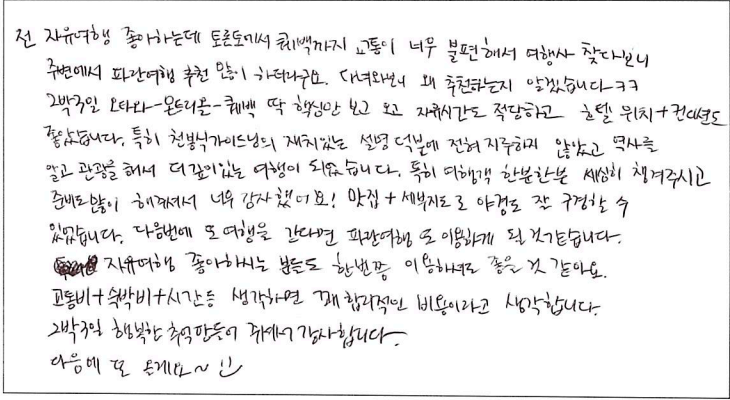 전 자유여행 좋아하는데 토론토에서 퀘백까지 교통이 너무 불편해서 여행사 찾다보니
주변에서 파란여행 추천 많이 하더라구요. 다녀와보니 왜 추천하는지 알겠습니다ㅋㅋ
2박3일 오타와-몬트리올-퀘백 딱 핵심만 보고 오고 자유시간도 적당하고 호텔 위치+컨디션도
좋았습니다. 특히 천봉식가이드님의 재치있는 설명 덕분에 전혀 지루하지 않았고 역사를
알고 관광을 해서 더 깊이있는 여행이 되었습니다. 특히 여행객 한분한분 세심히 챙겨주시고
준비도 많이 해주셔서 너무 감사했어요! 맛집+세부지도로 야경도 잘 구경할 수
있었습니다. 다음번에 또 여행을 간다면 파란여행 또 이용하게 될 것같습니다.
자유여행 좋아하시는 분들도 한번쯤 이용하셔도 좋을 것 같아요.
교통비+숙박비+시간등 생각하면 꽤 합리적인 비용이라고 생각합니다.
2박3일 행복한 추억 만들어 주셔서 감사합니다.
다음에 또 올게요~ :)